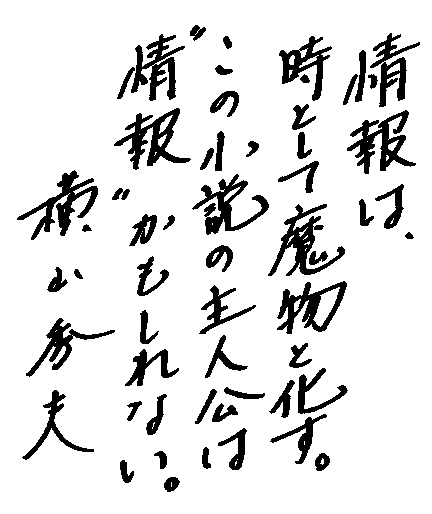 情報は、
時として魔物と化す。
この小説の主人公は
“情報”かもしれない。
横山秀夫